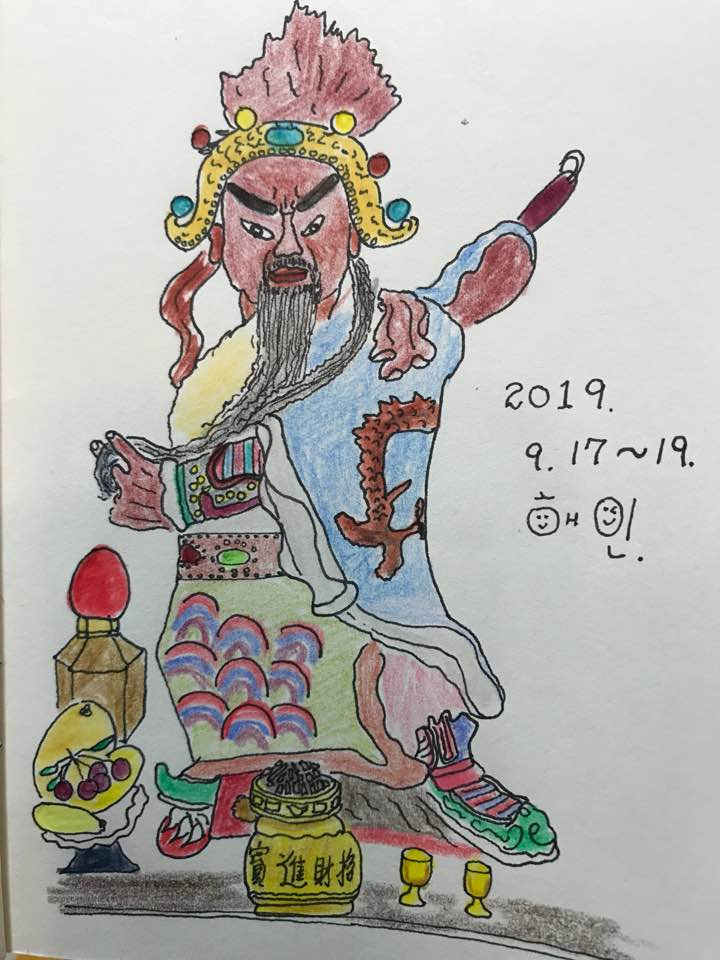 2019.
9. 17~19.
해인.
招財進寶